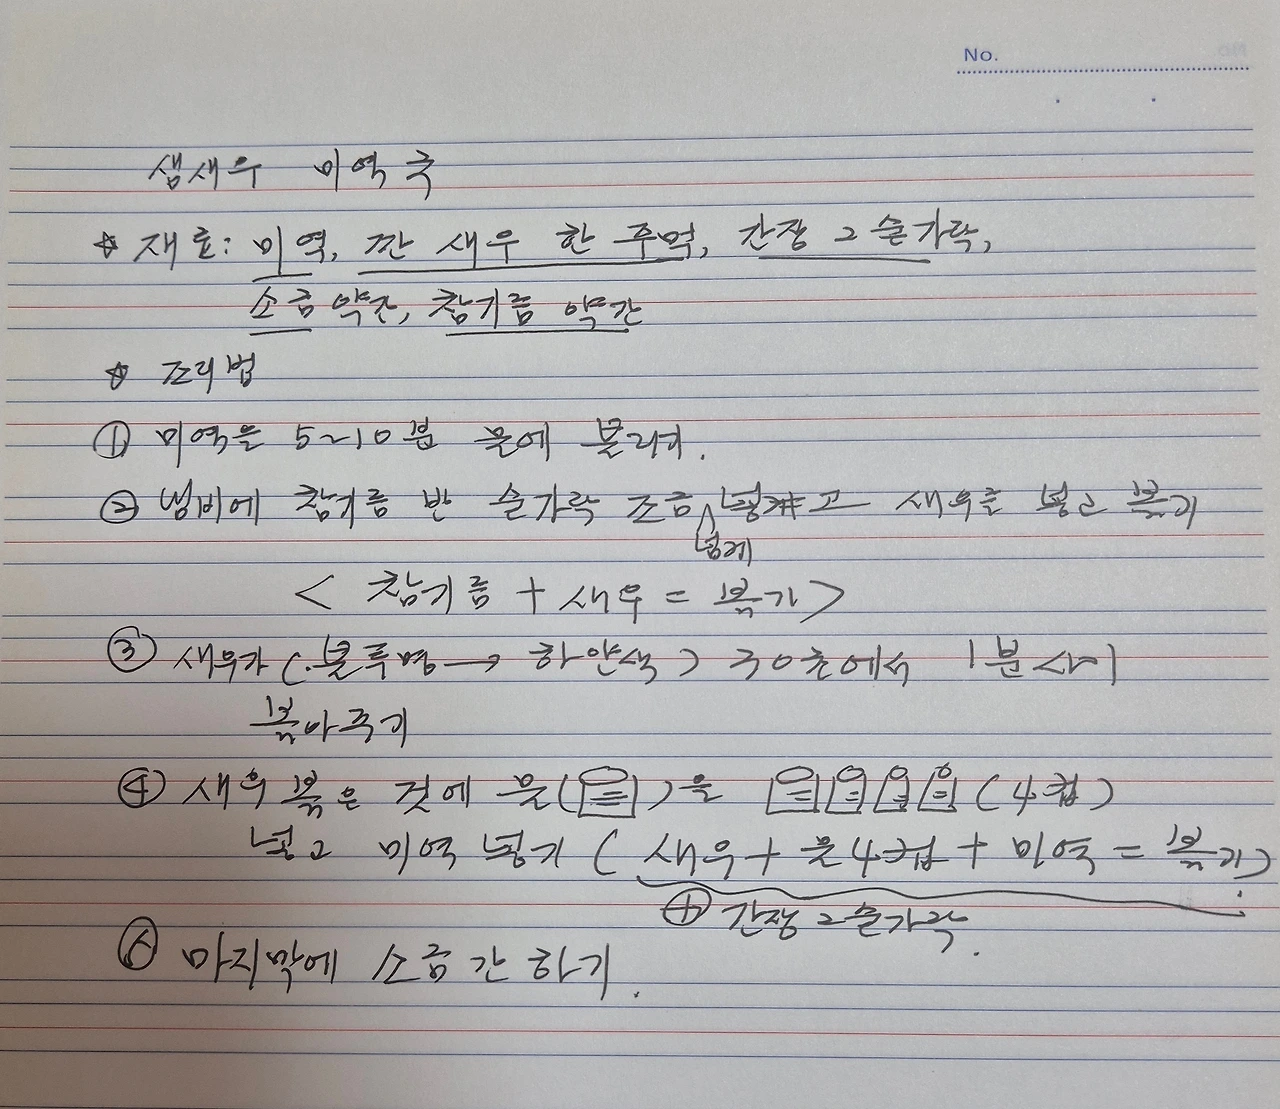 No.
샘새우 미역국
☆ 재료: 미역, 깐 새우 한 주먹, 간장 2 숟가락,
소금 약간, 참기름 약간
☆ 조리법
① 미역을 5~10분 물에 불리기.
② 냄비에 참기름 반 숟가락 조금 넣고 새우를 넣고 볶기
넘게
< 참기름 + 새우 = 볶기 >
③ 새우가 (불투명 → 하얀색) 30초에서 1분 사이
볶아주기
④ 새우 볶은 것에 물( )을 (4컵)
넣고 미역 넣기 ( 새우 + 물4컵 + 미역 = 볶기)
⊕ 간장 2숟가락.
⑤ 마지막에 소금 간 하기.